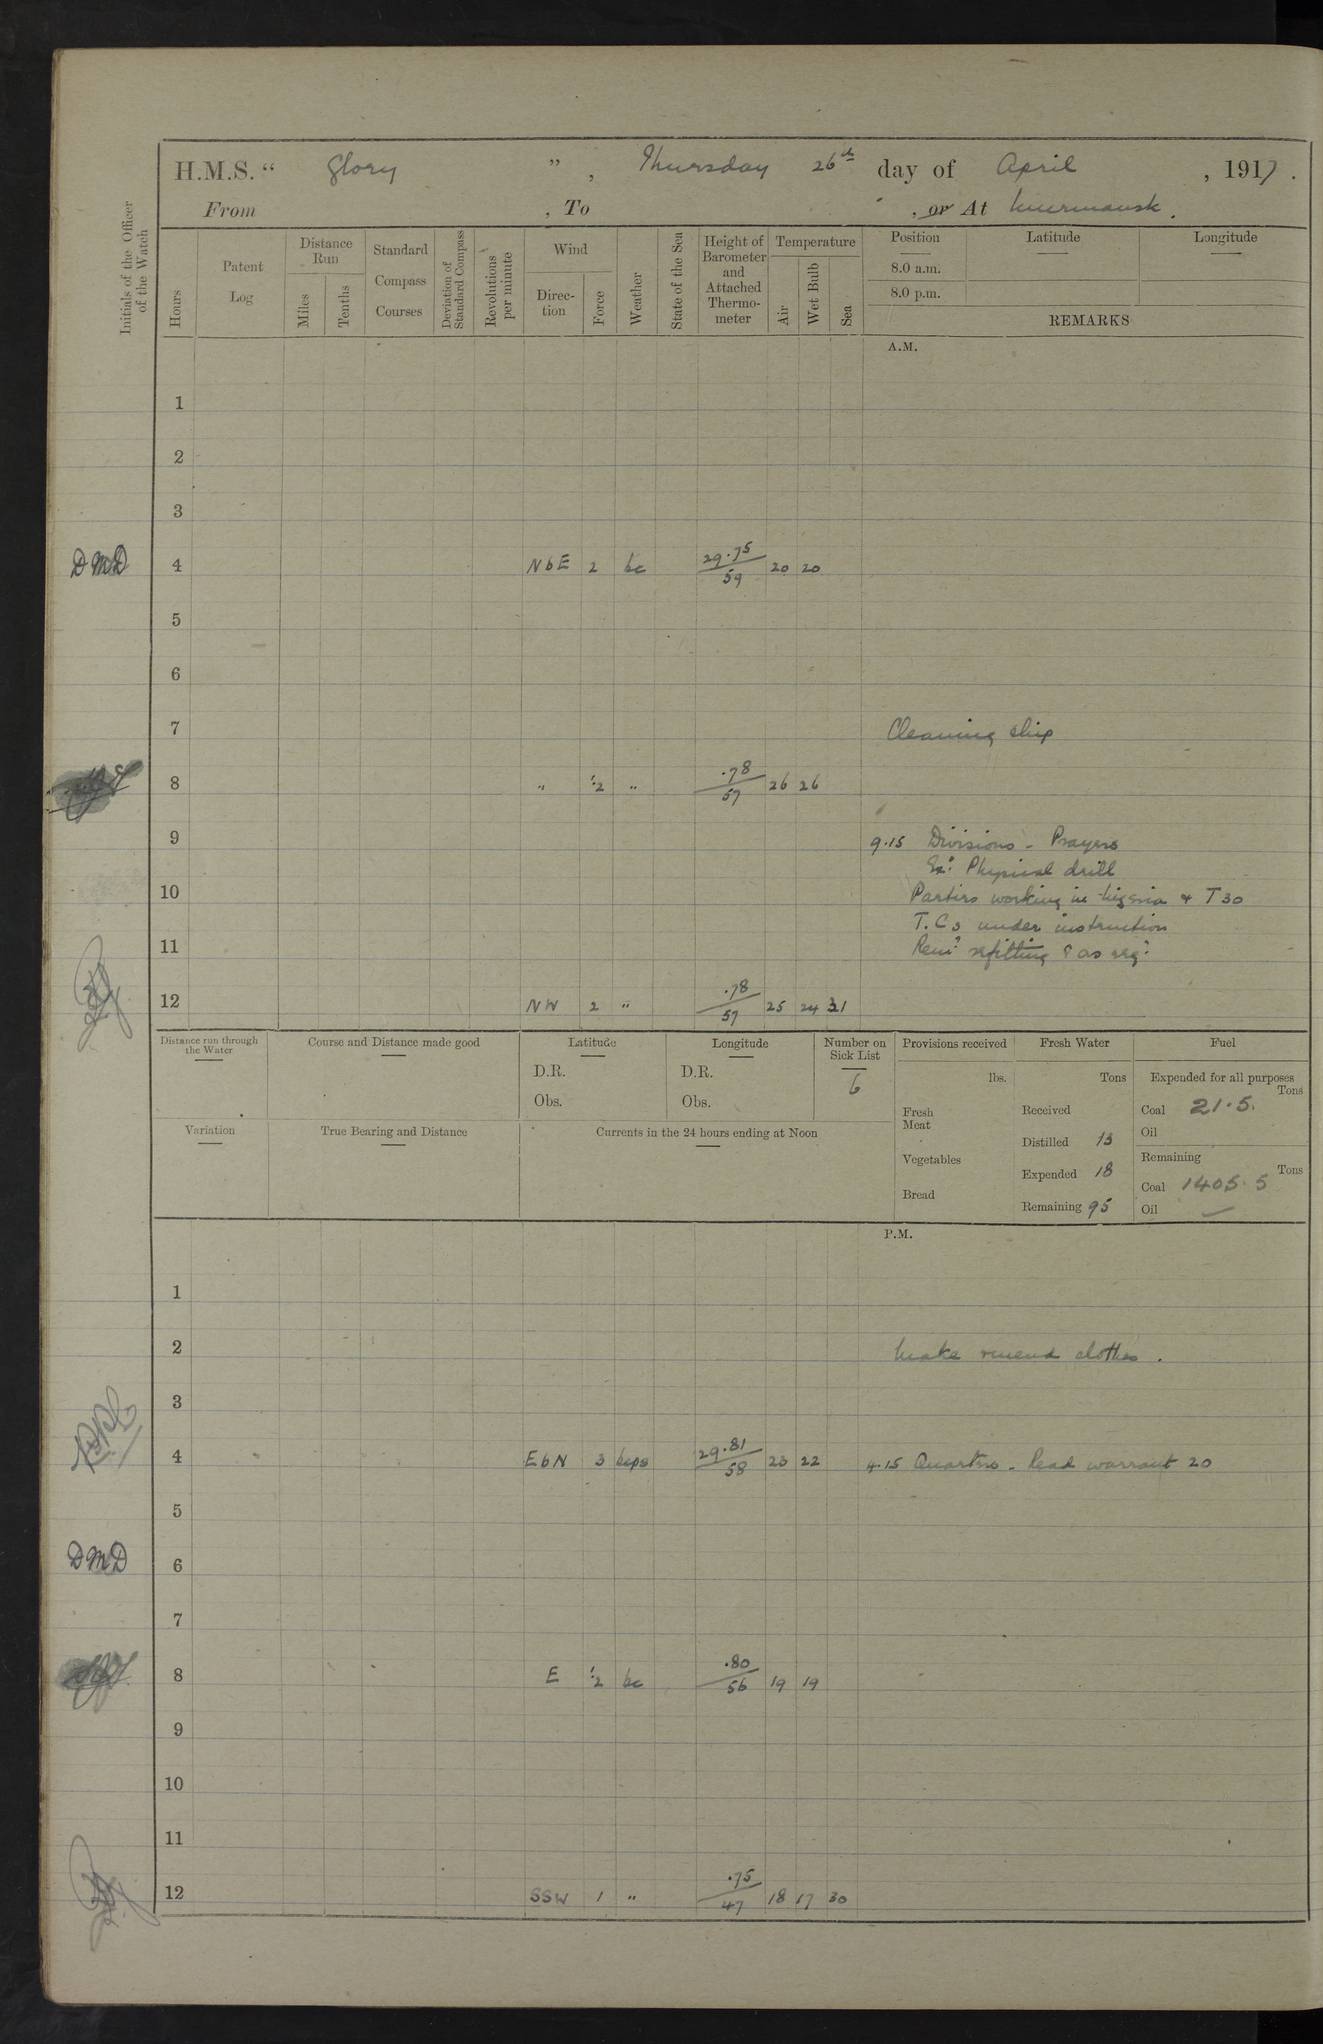 H.M.S. "Glory", Thursday 26th day of April, 1917.
From , To , or At Murmansk.
Initials of the Officer of the Watch
Hours
Patent Log
Distance Run
Miles
Tenths
Standard Compass Courses
Deviation of Standard Compass
Revolutions per minute
Wind
Direction
Force
Weather
State of the Sea
Height of Barometer and Attached Thermometer
Temperature
Air
Wet Bulb
Sea
Position
Latitude
Longitude
8.0 a.m.
8.0 p.m.
REMARKS
A.M.
1
2
3
DMD 4 NbE 2 bc 29.75/59 20 20
5
6
7 Cleaning ship
8 " 1-2 " .78/57 26 26
9 9.15 Divisions - Prayers
Ex: Physical drill
10 Parties working in & T 30
T.Cs under instruction
11 Remr refitting & as req:
12 NW 2 " .78/57 25 24 31
Distance run through the Water
Course and Distance made good
Latitude
D.R.
Obs.
Longitude
D.R.
Obs.
Number on Sick List
6
Provisions received
lbs.
Fresh Meat
Vegetables
Bread
Fresh Water
Tons
Received
Distilled 13
Expended 18
Remaining 95
Fuel
Expended for all purposes
Tons
Coal 21.5.
Oil
Remaining
Tons
Coal 1405.5
Oil —
Variation
True Bearing and Distance
Currents in the 24 hours ending at Noon
P.M.
1
2 Make mend clothes.
3
4 EbN 3 bcps 29.81/58 23 22 4.15 Quarters - Read warrant 20
5
DMD 6
7
8 E 1-2 bc .80/56 19 19
9
10
11
12 SSW 1 " .75/47 18 17 30